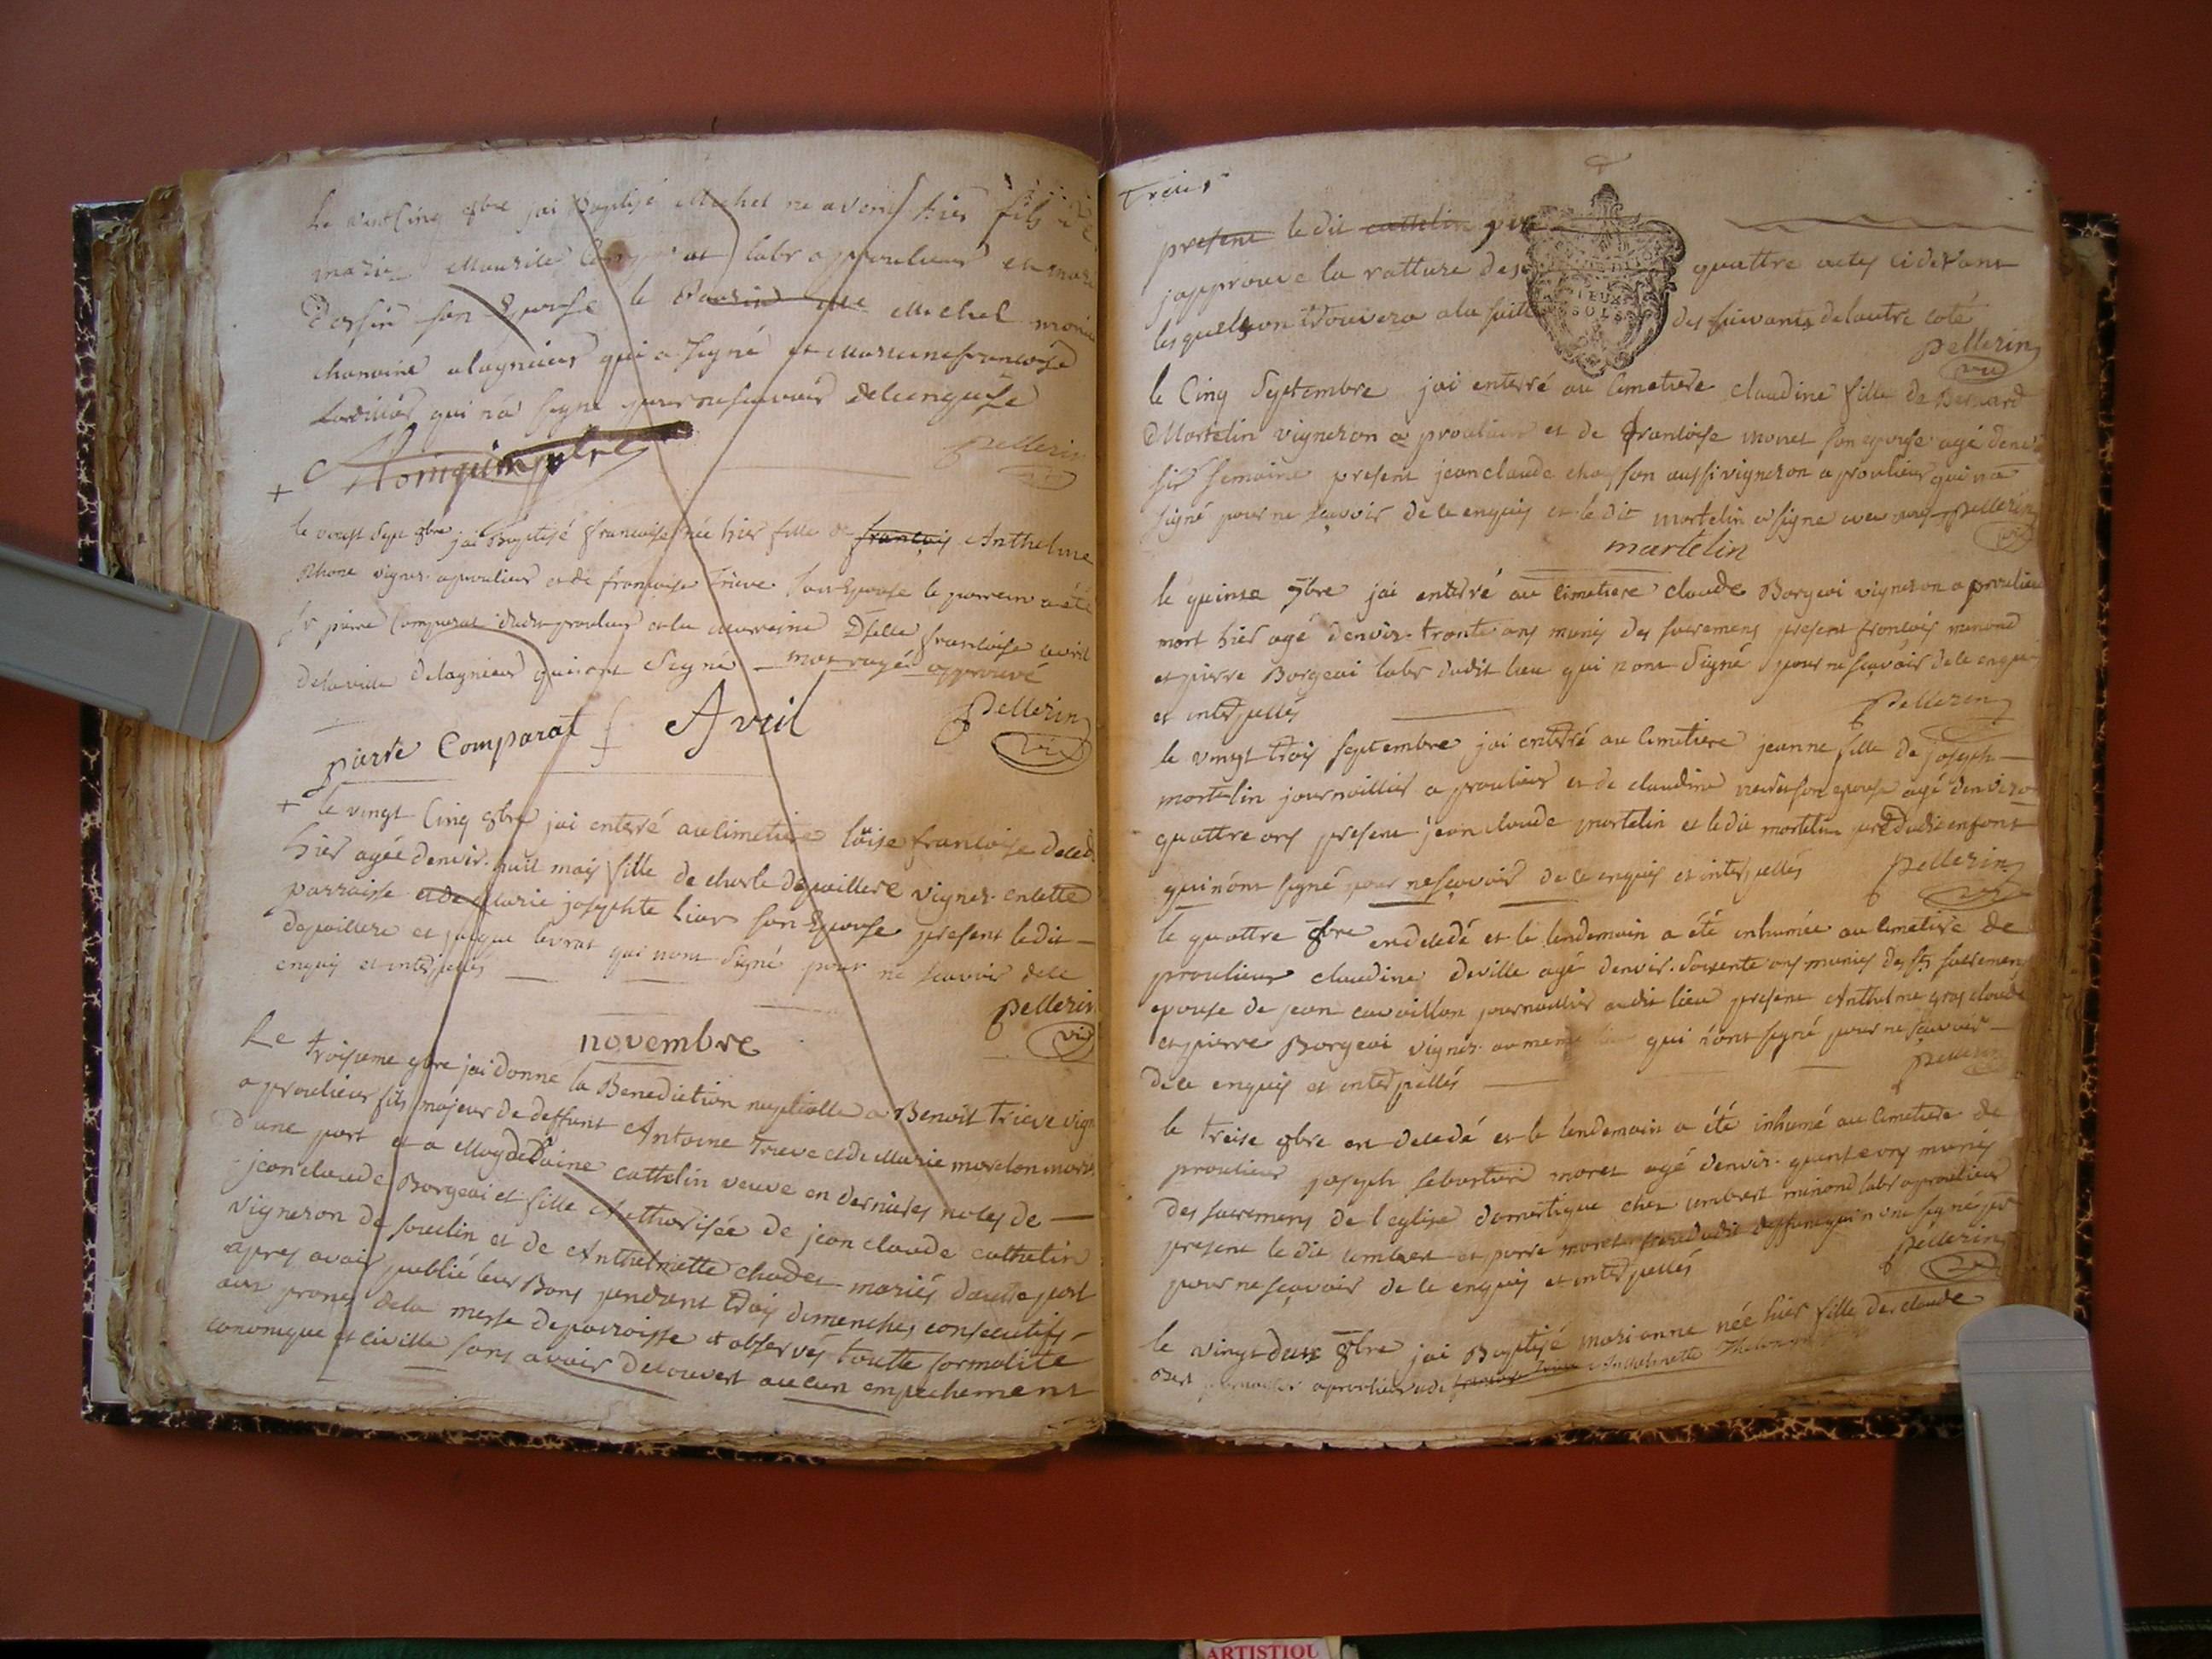 Le vint Cinq 8bre jai Baptisé Michel ne avent hier fils de
marie Maurile labr a proulieux et
son Epouse le Parrin Michel
chanoine a lagnieux qui a signé et
qui n'a signe pour ne scavoir de ce enquise
Pellerin
+
le vingt sept 8bre jai Baptisé francoise née hier fille de francois Anthelme
Rhone vigner a proulieux et de francoise Trieve son Epouse le parrein a été
Sr pierre Comparat dudit proulieux et la marreine Dselle francoise avril
de la ville de lagnieux qui ont Signé mot rayé approuvé
Pellerin
vic
pierre Comparat Avril
+ le vingt Cinq 8bre jai enterré au Cimetiere loüise francoise deced
hier agée denvir. huit mois fille de charle depaillere vigner. en cette
parroisse et de Marie josephte liar son Epouse present le dit
depaillere et jacque levrat qui n'ont Signé pour ne scavoir de ce
enquis et interpellés
Pellerin
vic
novembre
Le troisieme 9bre jai donne la Benediction nuptialle a Benoit Trieve vign
a proulieux fils majeur de deffunt Antoine Trieve et de Marie morelon mariés
d'une part et a Magdelaine cattelin veuve en dernieres noces de
jean claude Borgeai et fille Authorisée de jean claude cattelin
vigneron de souclin et de Anthelmette chodet mariés d'autre part
apres avoir publié leur Bans pendant trois dimenches consecutifs
aux prones de la messe de parroisse et observés toutte formalite
canonique et civille sans avoir decouvert aucun empechement
Treiv
present le dit cattelin pere
japprouve la ratture des quattre actes ci devant
les quels on trouvera a la suitte des suivants de l'autre coté
Pellerin
vic
le Cinq Septembre jai enterré au Cimetiere claudine fille de Bernard
Martelin vigneron a proulieux et de francoise monet son epouse agé denv.
six semaine present jean claude chasson aussi vigneron a proulieux qui n'a
signé pour ne sçavoir de ce enquis et le dit martelin a signe avec nous Pellerin
vic
martelin
le quinze 7bre jai enterré au Cimetiere claude Borgeai vigneron a proulieu
mort hier agé denvir. trante ans munis des sacremens present francois minond
et pierre Borgeai labr dudit lieu qui n'ont Signé pour ne sçavoir de ce enquis
et interpellés
Pellerin
le vingt trois septembre jai enterré au Cimetiere jeanne fille de joseph
martelin journaillier a proulieux et de claudine son epouse agé denviron
quattre ans present jean claude martelin et le dit martelin pere dudit enfant
qui n'ont signé pour ne sçavoir de ce enquis et interpellés Pellerin
vic
le quattre 8bre en decedé et le lendemain a été inhumée au Cimetiere de
proulieux claudine deville agé denvir. soixente ans munies des sts sacremens
epouse de jean cavaillon journaillier audit lieu present Anthelme gros claude
et pierre Borgeai vigner. au meme lieu qui n'ont signé pour ne scavoir
de ce enquis et interpellés
Pellerin
le treise 8bre en decedé et le lendemain a été inhumé au Cimetiere de
proulieux joseph sebastien moret agé denvir. quinse ans munis
des sacremens de l'eglise domestique chez umbert minond labr a proulieux
present le dit umbert et pierre moret frere dudit deffunt qui n'ont signé
pour ne sçavoir de ce enquis et interpellés
Pellerin
vic
le vingt deux 8bre jai Baptisé marianne née hier fille de claude
a proulieux et de francoise Anthelmette
ARTISTIQU